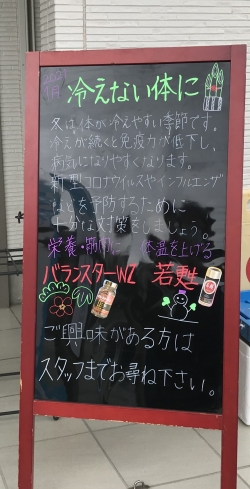 2021
1月
冷えない体に
冬は体が冷えやすい季節です。
冷えが続くと免疫力が低下し、
病気になりやすくなります。
新型コロナウイルスやインフルエンザ
などを予防するために
十分な対策をしましょう。
栄養補助に 体温を上げる
バランスターWZ 若甦
ご興味がある方は
スタッフまでお尋ね下さい。